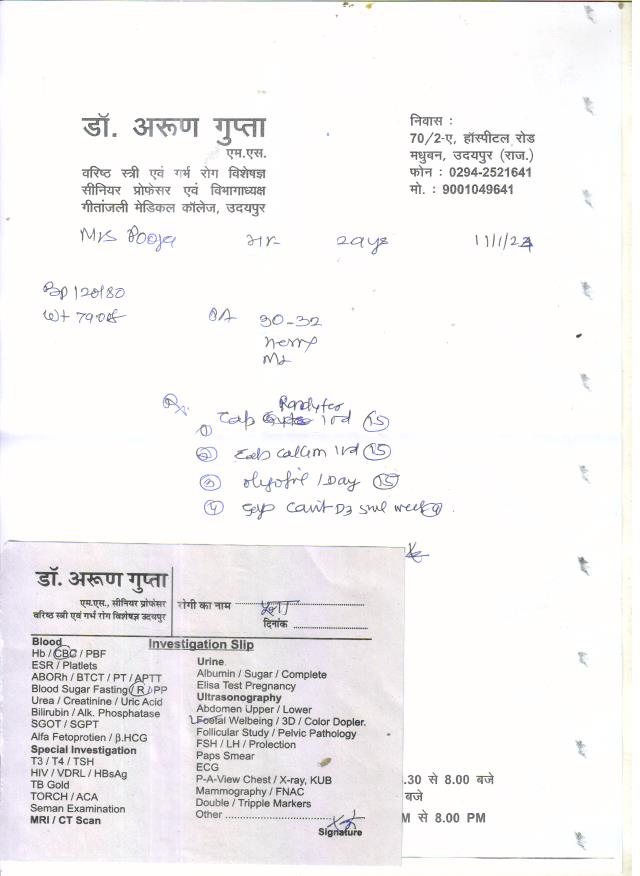 डॉ. अरूण गुप्ता
एम.एस.
वरिष्ठ स्त्री एवं गर्भ रोग विशेषज्ञ
सीनियर प्रोफेसर एवं विभागाध्यक्ष
गीतांजली मेडिकल कॉलेज, उदयपुर
निवास :
70/2-ए, हॉस्पीटल रोड
मधुबन, उदयपुर (राज.)
फोन : 0294-2521641
मो. : 9001049641
Mrs Pooja 11/1/23
BP 120/80
Wt
30-32
Rx
① Tab 1 od ⑮
② Tab 1 od ⑮
③ 1 Day ⑮
④ D3 week ④
डॉ. अरूण गुप्ता
एम.एस., सीनियर प्रोफेसर
वरिष्ठ स्त्री एवं गर्भ रोग विशेषज्ञ उदयपुर
रोगी का नाम
दिनांक
Investigation Slip
Blood
Hb / CBC / PBF
ESR / Platlets
ABORh / BTCT / PT / APTT
Blood Sugar Fasting / R / PP
Urea / Creatinine / Uric Acid
Bilirubin / Alk. Phosphatase
SGOT / SGPT
Alfa Fetoprotien / β.HCG
Special Investigation
T3 / T4 / TSH
HIV / VDRL / HBsAg
TB Gold
TORCH / ACA
Seman Examination
MRI / CT Scan
Urine
Albumin / Sugar / Complete
Elisa Test Pregnancy
Ultrasonography
Abdomen Upper / Lower
Foetal Welbeing / 3D / Color Dopler.
Follicular Study / Pelvic Pathology
FSH / LH / Prolection
Paps Smear
ECG
P-A-View Chest / X-ray, KUB
Mammography / FNAC
Double / Tripple Markers
Other
Signature
.30 से 8.00 बजे
बजे
M से 8.00 PM